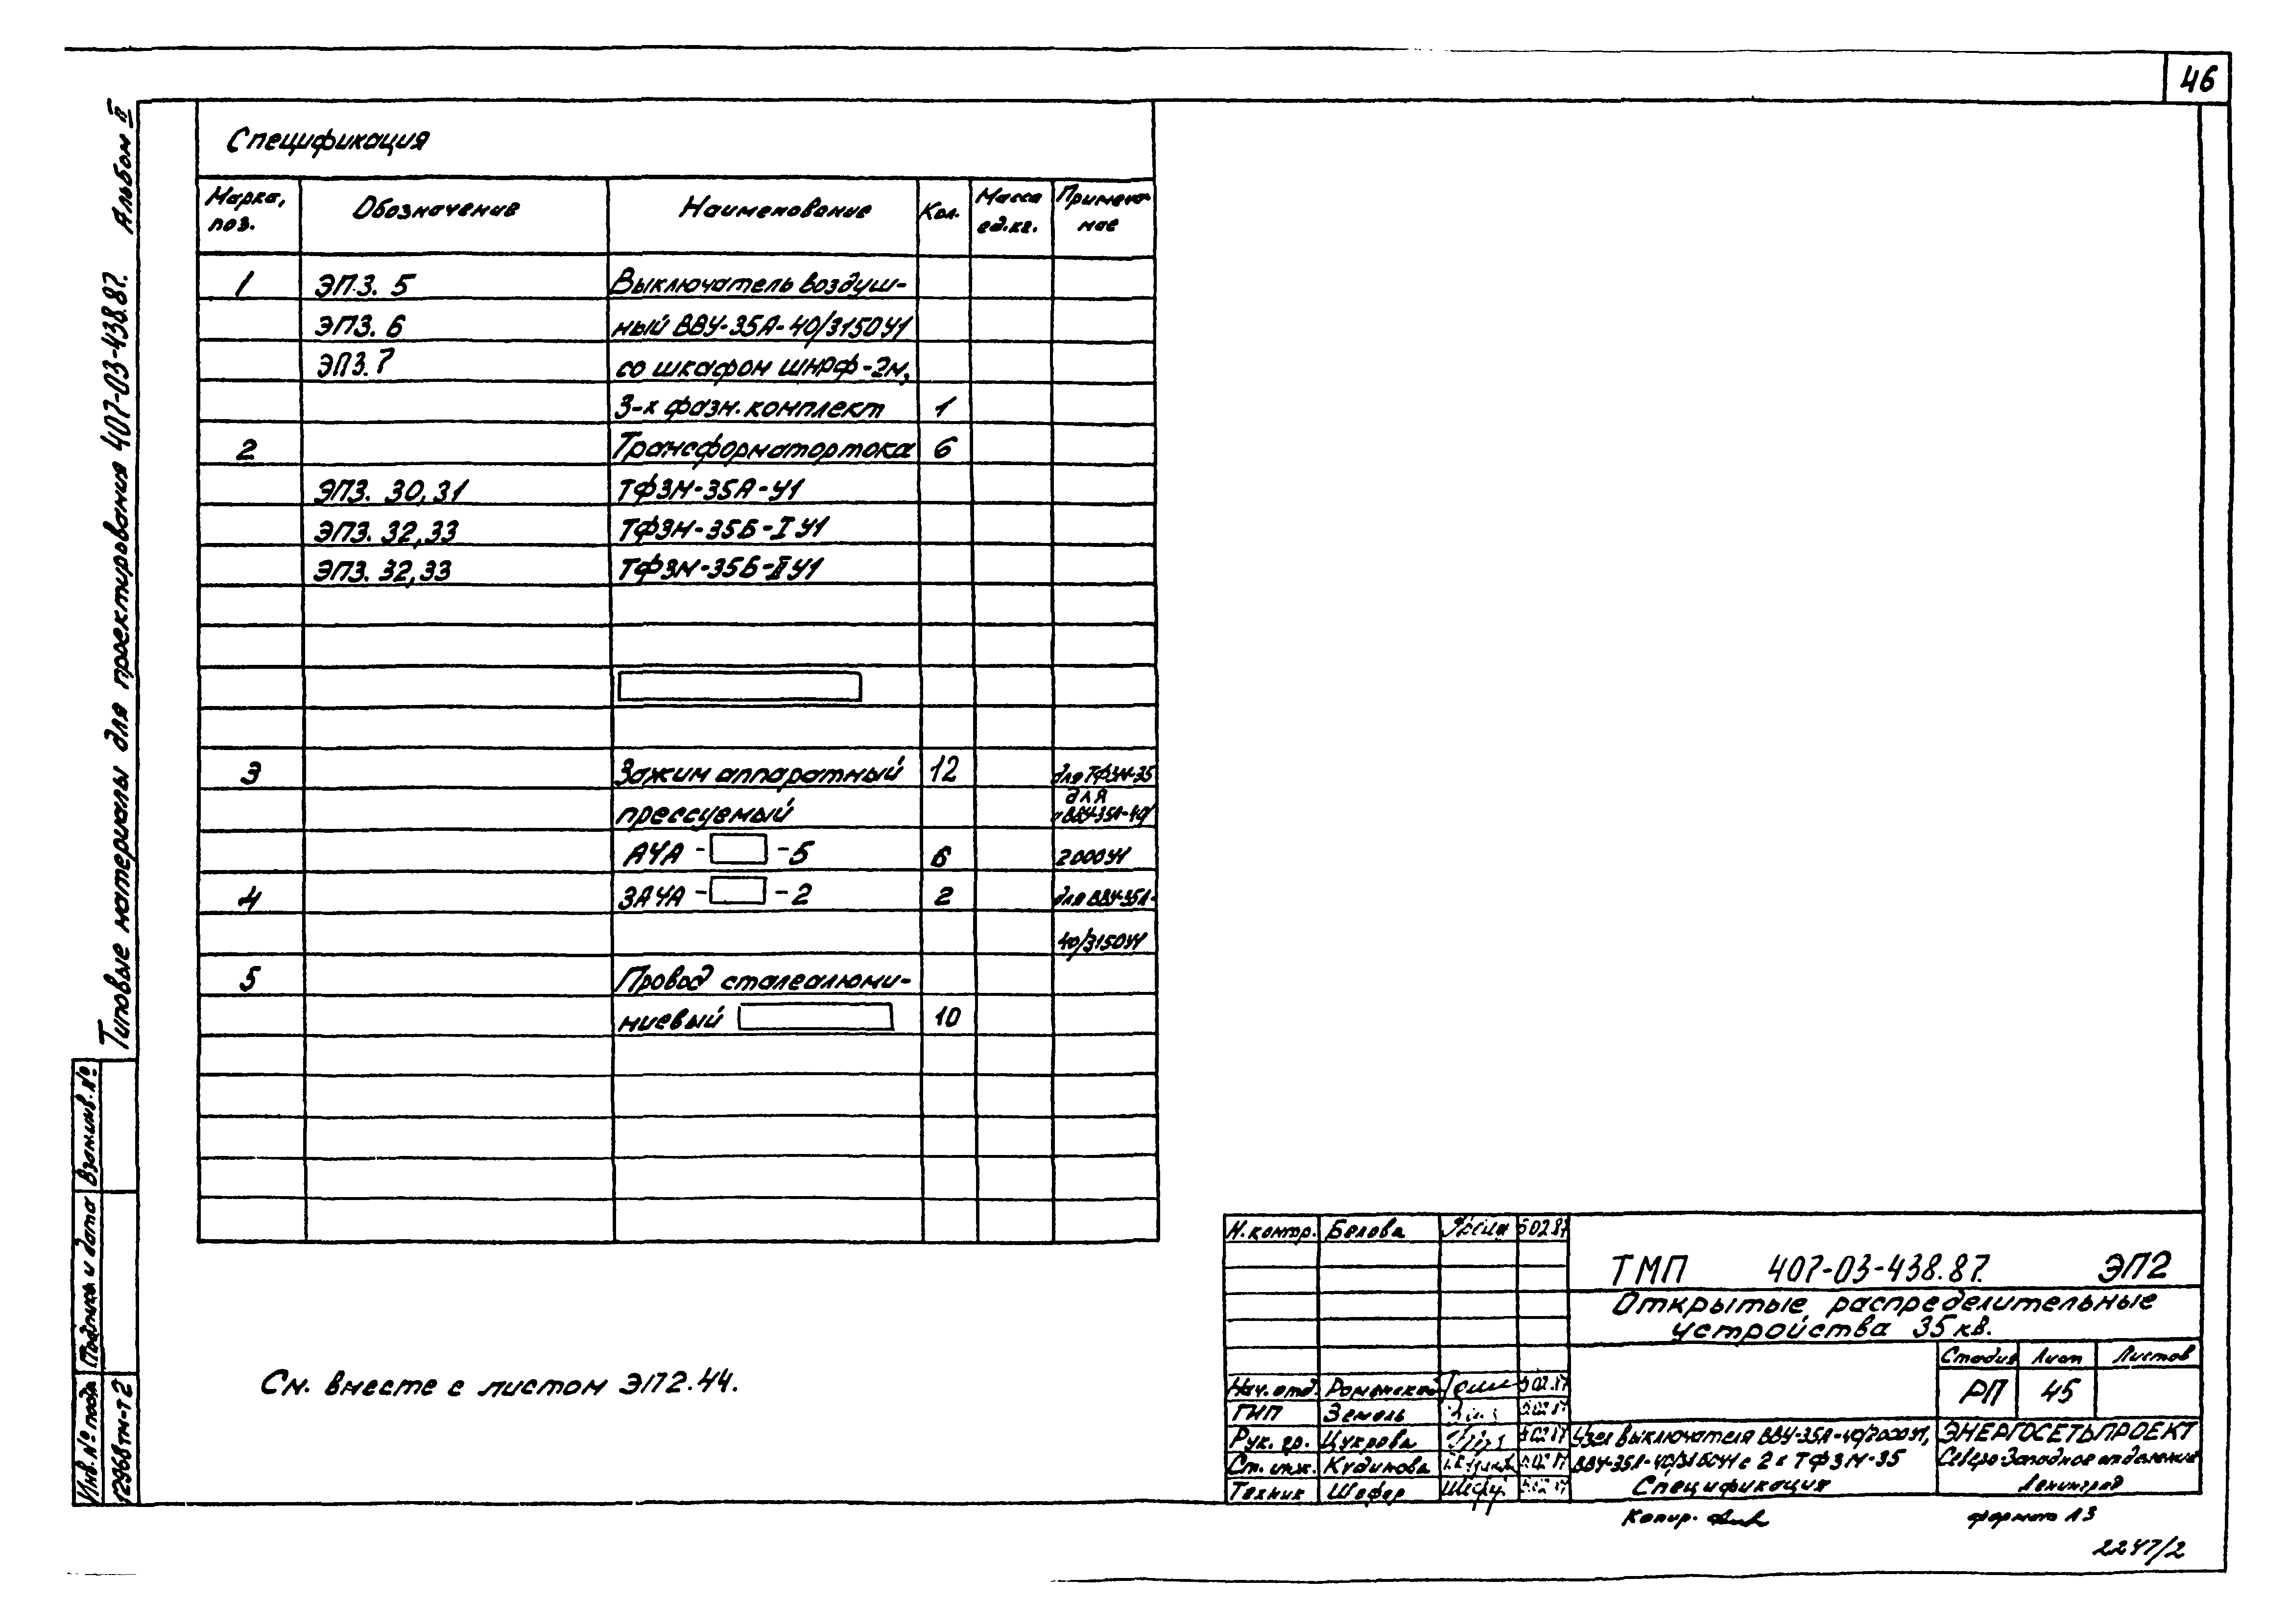 46
Типовые материалы для проектирования 407-03-438.87. Альбом II
Спецификация
Марка, поз. Обозначение Наименование Кол. Масса ед.кг. Примеча-ние
1 ЭП3. 5 Выключатель воздуш-
ЭП3. 6 ный ВВУ-35А-40/3150У1
ЭП3. 7 со шкафом ШНРФ-2м,
3-х фазн. комплект 1
2 Трансформатор тока 6
ЭП3. 30,31 ТФЗМ-35А-У1
ЭП3. 32,33 ТФЗМ-35Б-I У1
ЭП3. 32,33 ТФЗМ-35Б-II У1
3 Зажим аппаратный 12 для ТФЗМ-35
прессуемый для ВВУ-35А-40/
А4А - -5 6 2000У1
4 3А4А - -2 2 для ВВУ-35А-
40/3150У1
5 Провод сталеалюми-
ниевый 10
См. вместе с листом ЭП2.44.
Взам.инв.№
Подпись и дата
Инв.№ подл. 12968тм-т2
Н.контр. Белова 02.87
ТМП 407-03-438.87. ЭП2
Открытые распределительные
устройства 35 кв.
Стадия Лист Листов
РП 45
Нач. отд. Роменский 02.87
ГИП Земель 02.87
Рук. гр. Цукрова 02.87
Ст. инж. Кудинова 02.87
Техник Шефер 02.87
Узел выключателя ВВУ-35А-40/2000У1,
ВВУ-35А-40/3150У1 с 2 х ТФЗМ-35
Спецификация
ЭНЕРГОСЕТЬПРОЕКТ
Северо-Западное отделение
Ленинград
Копир.
формат А3
2247/2